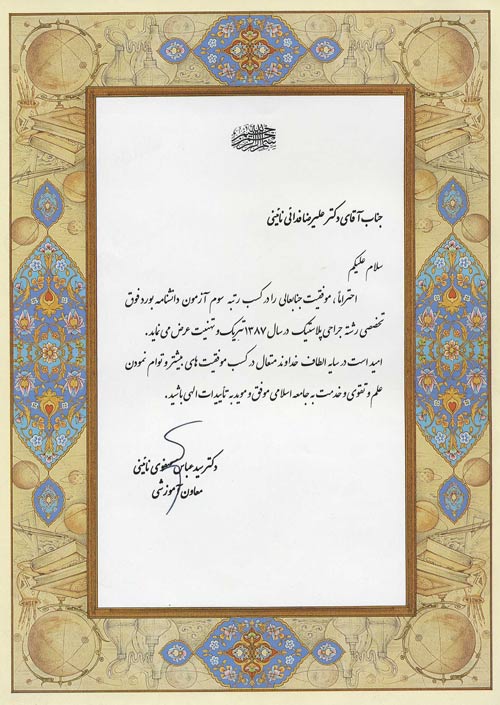 بسم الله الرحمن الرحیم
جناب آقای دکتر علیرضا فدائی نائینی
سلام علیکم
احتراماً، موفقیت جنابعالی را در کسب رتبه سوم آزمون دانشنامه بورد فوق
تخصصی رشته جراحی پلاستیک در سال ۱۳۸۷ تبریک و تهنیت عرض می نماید.
امید است در سایه الطاف خداوند متعال در کسب موفقیت های بیشتر و توام نمودن
علم و تقوی و خدمت به جامعه اسلامی موفق و موید به تأییدات الهی باشید.
دکتر سید عباس صفوی نائینی
معاون آموزشی